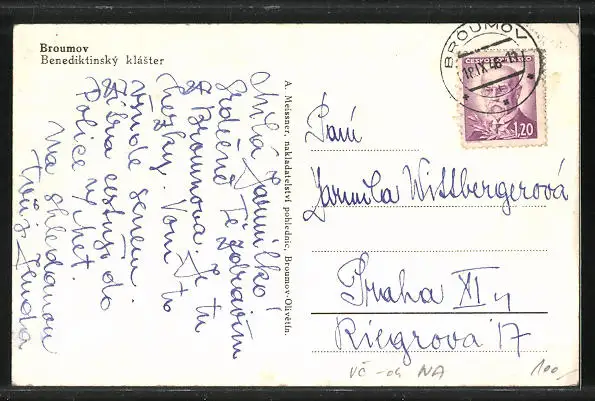 Broumov
Benediktinský klášter
Milá Jarmilko!
Srdečně Tě zdravím
z Broumova. Je tu
hezky. Vom to
všude
do
Police n/Met.
Na shledanou
Tvůj Jenda
A. Meissner, nakladatelství pohlednic, Broumov-Olivětín.
BROUMOV
18.IX.46-13
ČESKOSLOVENSKO
1,20
Paní
Jarmila Wittbergerová
Praha XI
Riegrova 17
VČ-och NA
100,-